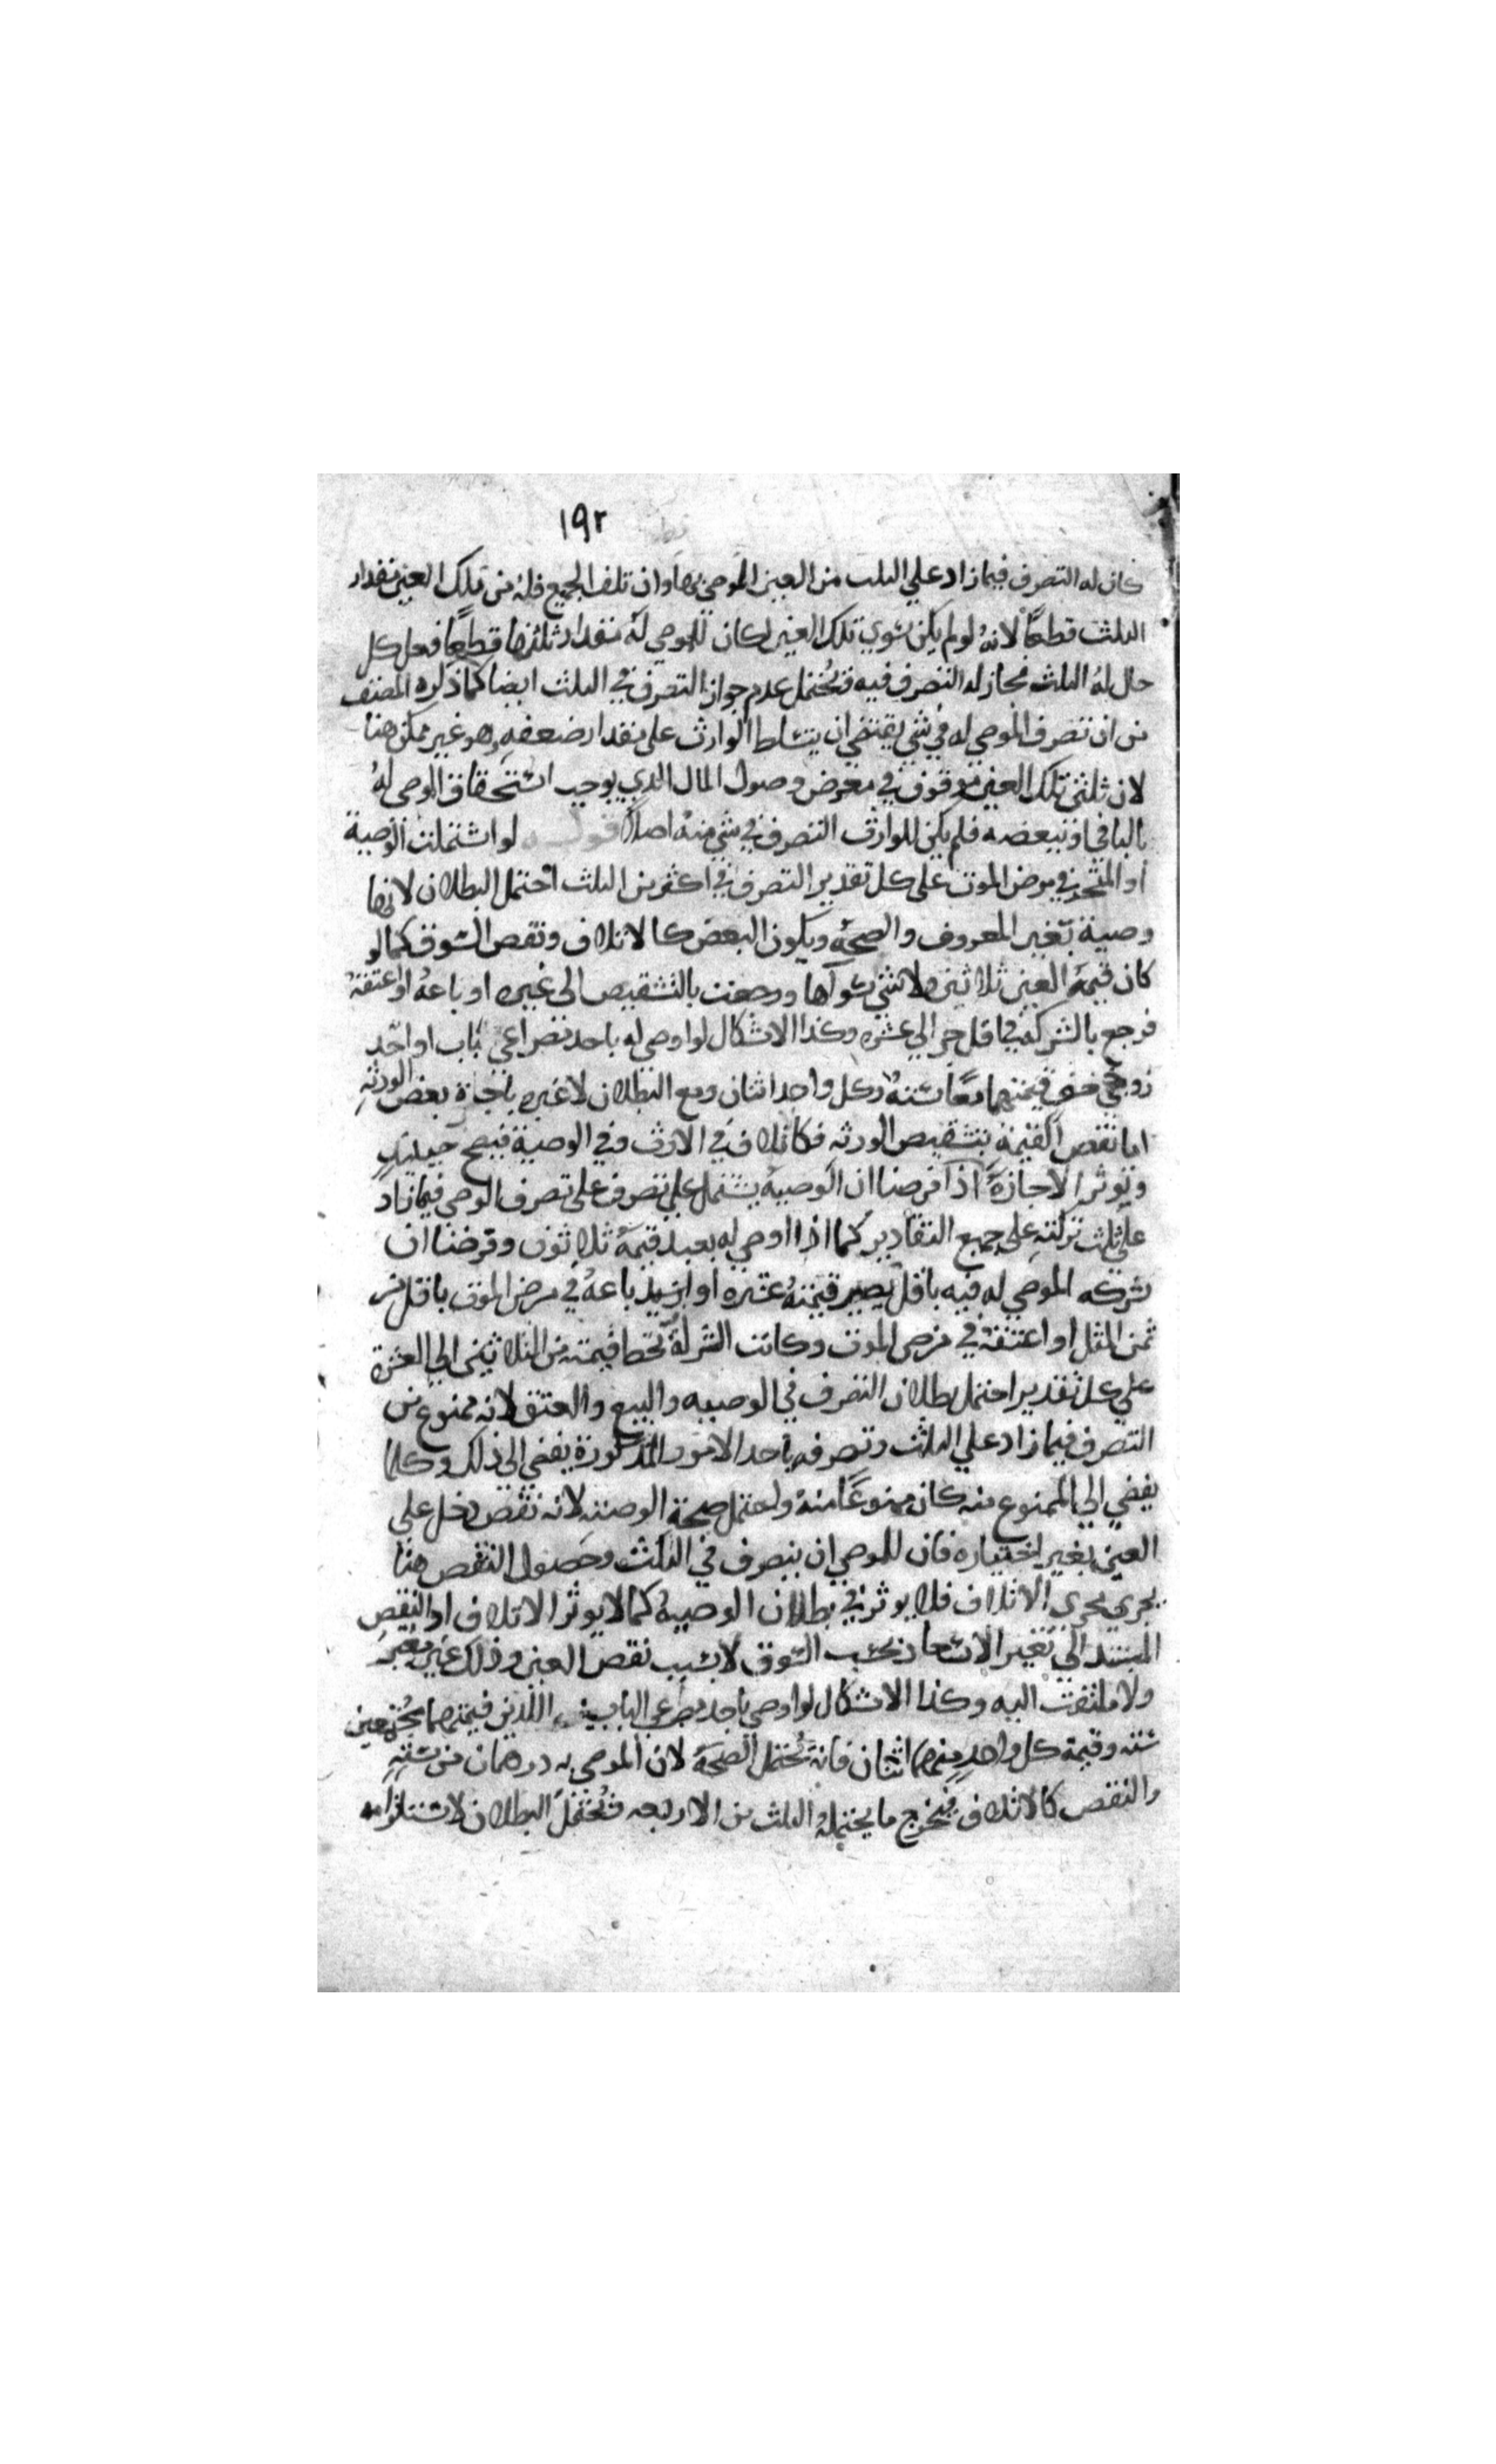 ١٩٢
كان له التصرف فيما زاد علي الثلث من العين الموصي بها وان تلف الجميع فله من تلك العين مقدار
الثلث قطعًا لانهُ لو لم يكن سوي تلك العين لكان للموصي له مقدار ثلثها قطعًا فعل كل
حال لهُ الثلث فجاز له التصرف فيه فيحُتمل عدم جواز التصرف في الثلث ايضا كما ذكره المصنف
من ان تصرف الموصي له في شي يقتضي ان يتسلط الوارث علي مقدار ضعفهِ وهو غير ممكن هنا
لان ثلثي تلك العين موقوف في معرض وصول المال الذي يوجب استحقاق الموصي لهُ
بالباقي او ببعضه فلم يكن للوارث التصرف في شي منهُ اصلا قوله لو اشتملت الوصية
او المنجز في مرض الموت علي كل تقدير التصرف في اكثر من الثلث احتمل البطلان لانها
وصية بغير المعروف والصحة ويكون البعض كالاتلاف ونقص السوق كما لو
كان قيمة العين ثلاثين ولا شي سواها ورجعت بالتشقيص الي غيره او باعهُ او اعتقهُ
فرجع بالشركة في اقل جزء الي عشره وكذا الاشكال لو اوصي له باحد مصراعي باب او احد
زوجي خف قيمتهما معًا ستهُ وكل واحد اثنان ومع البطلان لا غيره باجازة بعض الورثهِ
اما نقص القيمة بتشقيص الورثه فكاتلاف في الارث وفي الوصية فيصح حينئذٍ
وتوثر الاجازةَ اذا فرضنا ان الوصية يشتمل علي تصرف علي تصرف الموصي فيما زاد
علي ثلث تركته علي جميع التقادير كما اذا اوصي له بعبد قيمةُ ثلاثون وفرضنا ان
شركه الموصي له فيه باقل يصير قيمتهُ عشره او ازيد باعهُ في مرض الموت باقل من
ثمن المثل او اعتقهُ في مرض الموت وكانت الشركة تحط قيمته من الثلاثين الي العشرة
علي كل تقدير احتمل بطلان التصرف في الوصيه والبيع والعتق لانه ممنوع من
التصرف فيما زاد علي الثلث وتصرفه باحد الامور المذكورة يفضي الي ذلك وكلما
يفضي الي الممنوع منه كان ممنوعًا منهُ واحتمل صحة الوصيته لانه نقص دخل علي
العين بغير اختياره فان للموصي ان يتصرف في الثلث وحصول النقص هنا
يجري مجري الاتلاف فلا يوثر في بطلان الوصية كما لا يوثر الاتلاف او النقص
المستند الي تغير الاسعار بحسب السوق لا بسبب نقص العين وذلك غير معتبر
ولا ملتفت اليه وكذا الاشكال لو اوصي باحد مصراعي الباب اللذين قيمتهما مجُتمعين
سته وقيمة كل واحدٍ منهما اثنان فانهُ يحُتمل الصحة لان الموصي به درهمان من ستهٍ
والنقص كالاتلاف فيُخرج ما يحتملهُ الثلث من الاربعه فيحُتمل البطلان لاستلزامه